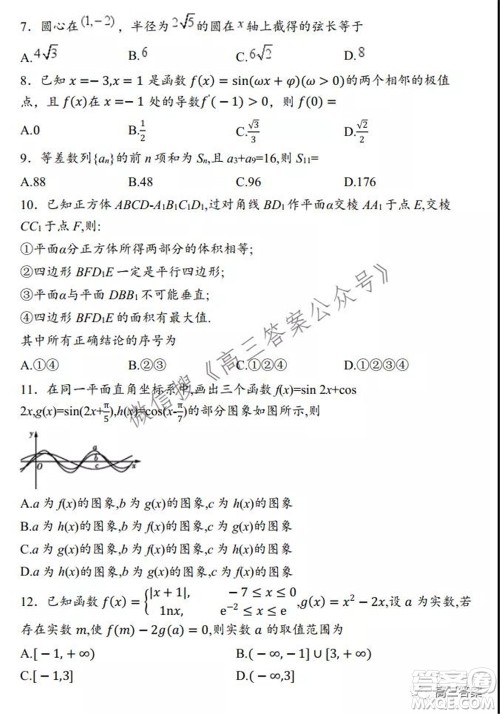 7．圆心在(1,−2)，半径为2√5的圆在x轴上截得的弦长等于
A.4√3 B.6 C.6√2 D.8
8．已知 x=−3,x=1 是函数 f(x)=sin(ωx+φ)(ω>0)的两个相邻的极值
点，且 f(x)在 x=−1 处的导数f′(−1)>0，则 f(0)=
A.0 B.1/2 C.√3/3 D.√2/2
9．等差数列{aₙ}的前 n 项和为 Sₙ,且 a₃+a₉=16,则 S₁₁=
A.88 B.48 C.96 D.176
10．已知正方体 ABCD-A₁B₁C₁D₁,过对角线 BD₁ 作平面α交棱 AA₁ 于点 E,交棱
CC₁ 于点 F,则:
①平面α分正方体所得两部分的体积相等;
②四边形 BFD₁E 一定是平行四边形;
③平面α与平面 DBB₁ 不可能垂直;
④四边形 BFD₁E 的面积有最大值.
其中所有正确结论的序号为
A.①④ B.②③ C.①②④ D.①②③④
11．在同一平面直角坐标系中,画出三个函数 f(x)=sin 2x+cos
2x,g(x)=sin(2x+π/5),h(x)=cos(x-π/7)的部分图象如图所示,则
y
a
b
c
O
x
A.a 为 f(x)的图象,b 为 g(x)的图象,c 为 h(x)的图象
B.a 为 h(x)的图象,b 为 f(x)的图象,c 为 g(x)的图象
C.a 为 g(x)的图象,b 为 f(x)的图象,c 为 h(x)的图象
D.a 为 h(x)的图象,b 为 g(x)的图象,c 为 f(x)的图象
12．已知函数 f(x)={|x+1|, −7≤x≤0
1nx, e⁻²≤x≤e ,g(x)=x²−2x,设 a 为实数,若
存在实数 m,使 f(m)−2g(a)=0,则实数 a 的取值范围为
A.[−1,+∞) B.(−∞,−1]∪[3,+∞)
C.[−1,3] D.(−∞,3]
微信搜《高三答案公众号》
高三答案
答案圈
MXQE.COM